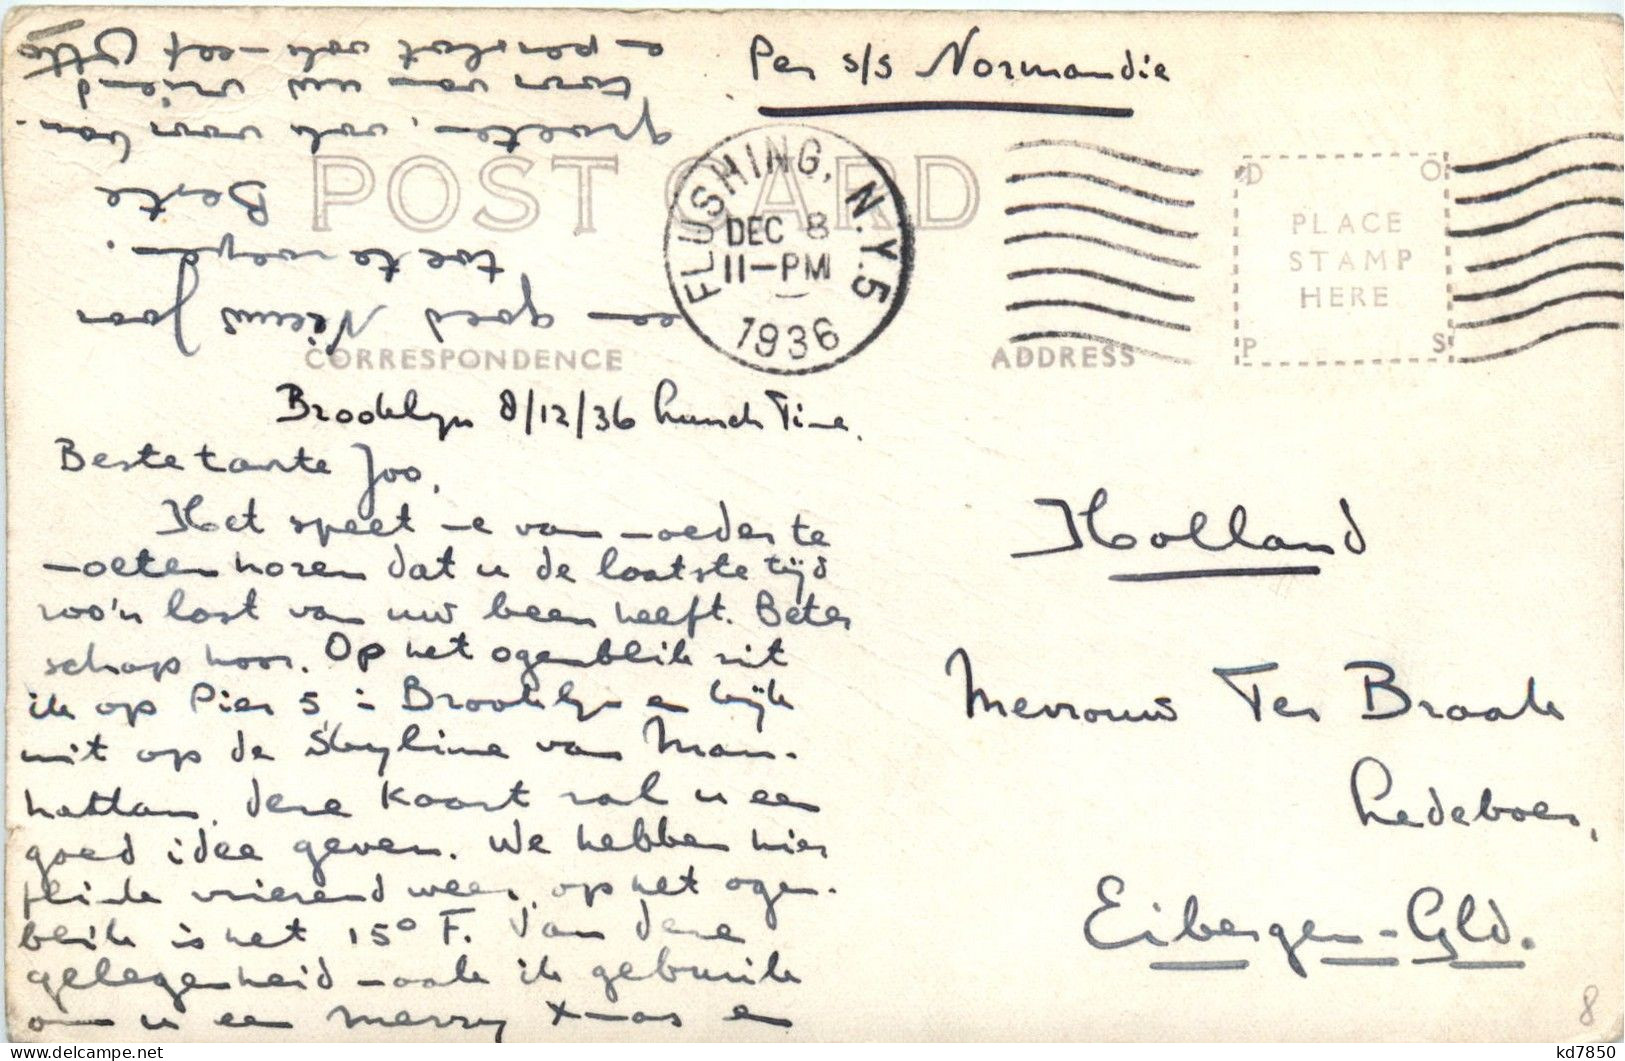 Per s/s Normandie
POST CARD
FLUSHING, N.Y. 5
DEC 8
11-PM
1936
PLACE
STAMP
HERE
D O
P S
CORRESPONDENCE
ADDRESS
Brooklyn 8/12/36 Lunch Time.
Beste tante Joo,
Het speet me van moeder te
moeten horen dat u de laatste tijd
zoo'n last van uw been heeft. Beter
schap hoor. Op het ogenblik zit
ik op Pier 5 in Brooklyn en kijk
uit op de Skyline van Man-
hattan. Deze kaart zal u een
goed idee geven. We hebben hier
flink vriezend weer, op het ogen-
blik is het 15° F. Van deze
gelegenheid maak ik gebruik
om u een merry X-mas en
een goed Nieuw Jaar
toe te roepen.
Beste
groeten, ook voor
van uw vriend
ook
Otto
Holland
Mevrouw Ter Braak
Ledeboer,
Eibergen-Gld.
8
kd7850